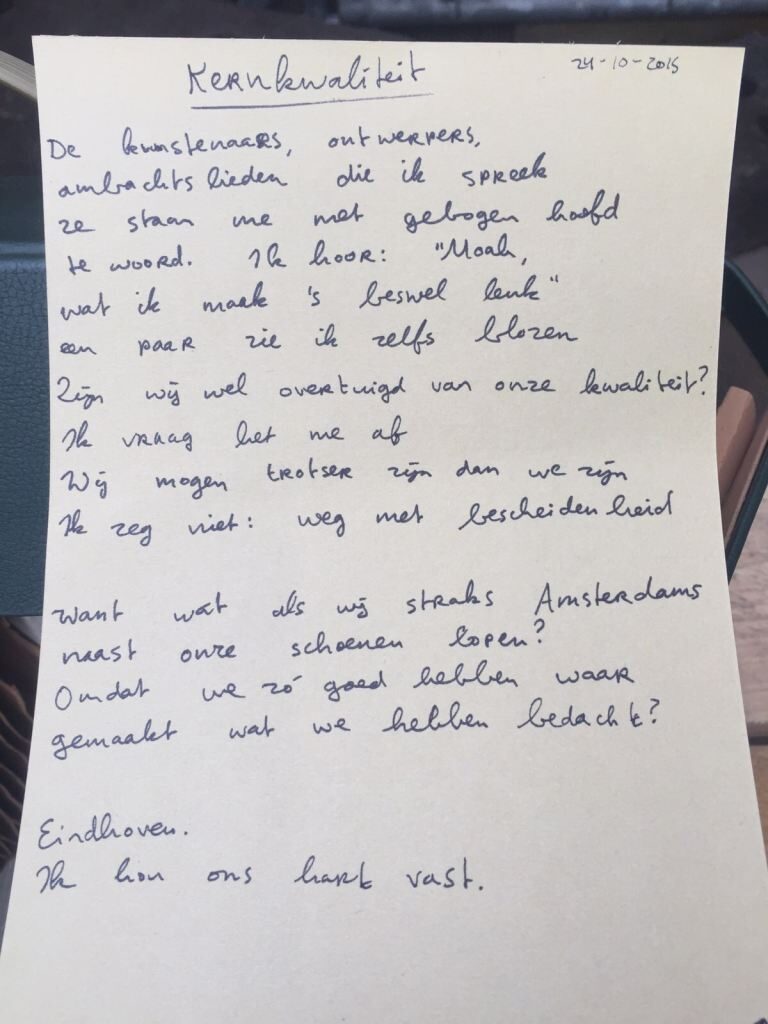 Kernkwaliteit
24-10-2015
De kunstenaars, ontwerpers,
ambachtslieden die ik spreek
ze staan me met gebogen hoofd
te woord. Ik hoor: "Moah,
wat ik maak 's beswel leuk"
een paar zie ik zelfs blozen
Zijn wij wel overtuigd van onze kwaliteit?
Ik vraag het me af
Wij mogen trotser zijn dan we zijn
Ik zeg niet: weg met bescheidenheid
Want wat als wij straks Amsterdams
naast onze schoenen lopen?
Omdat we zó goed hebben waar
gemaakt wat we hebben bedacht?
Eindhoven.
Ik hou ons hart vast.